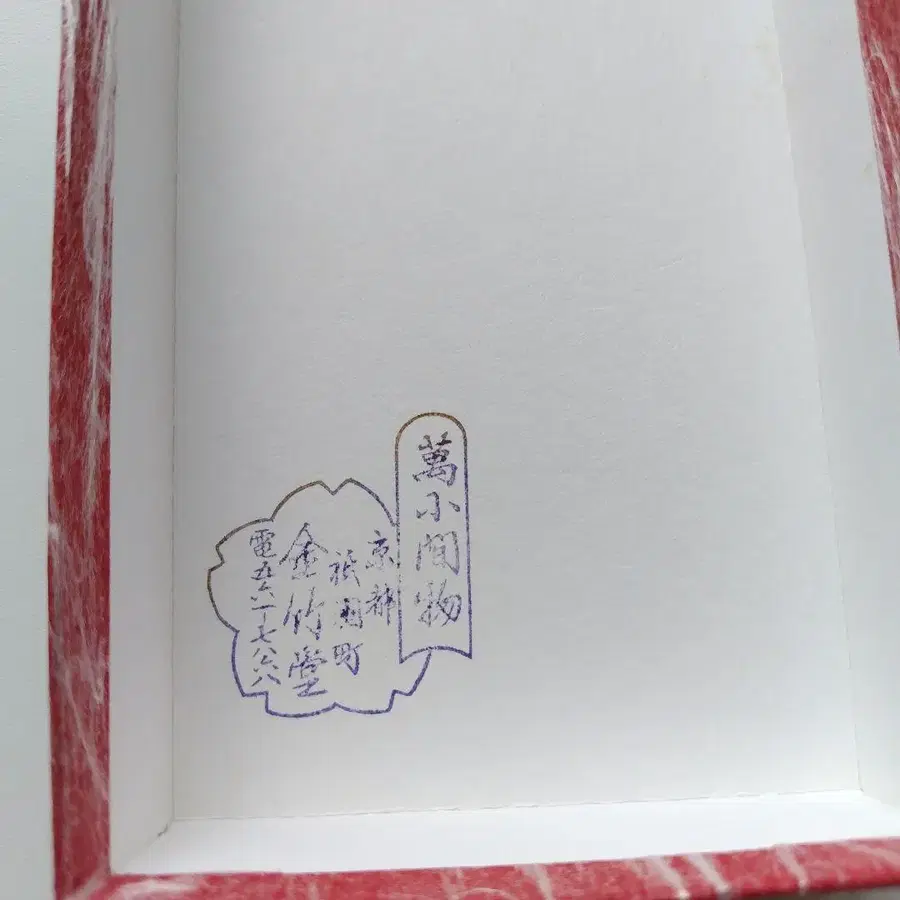 萬小間物
京都
祇園町
金竹堂
電五六一-七八六八